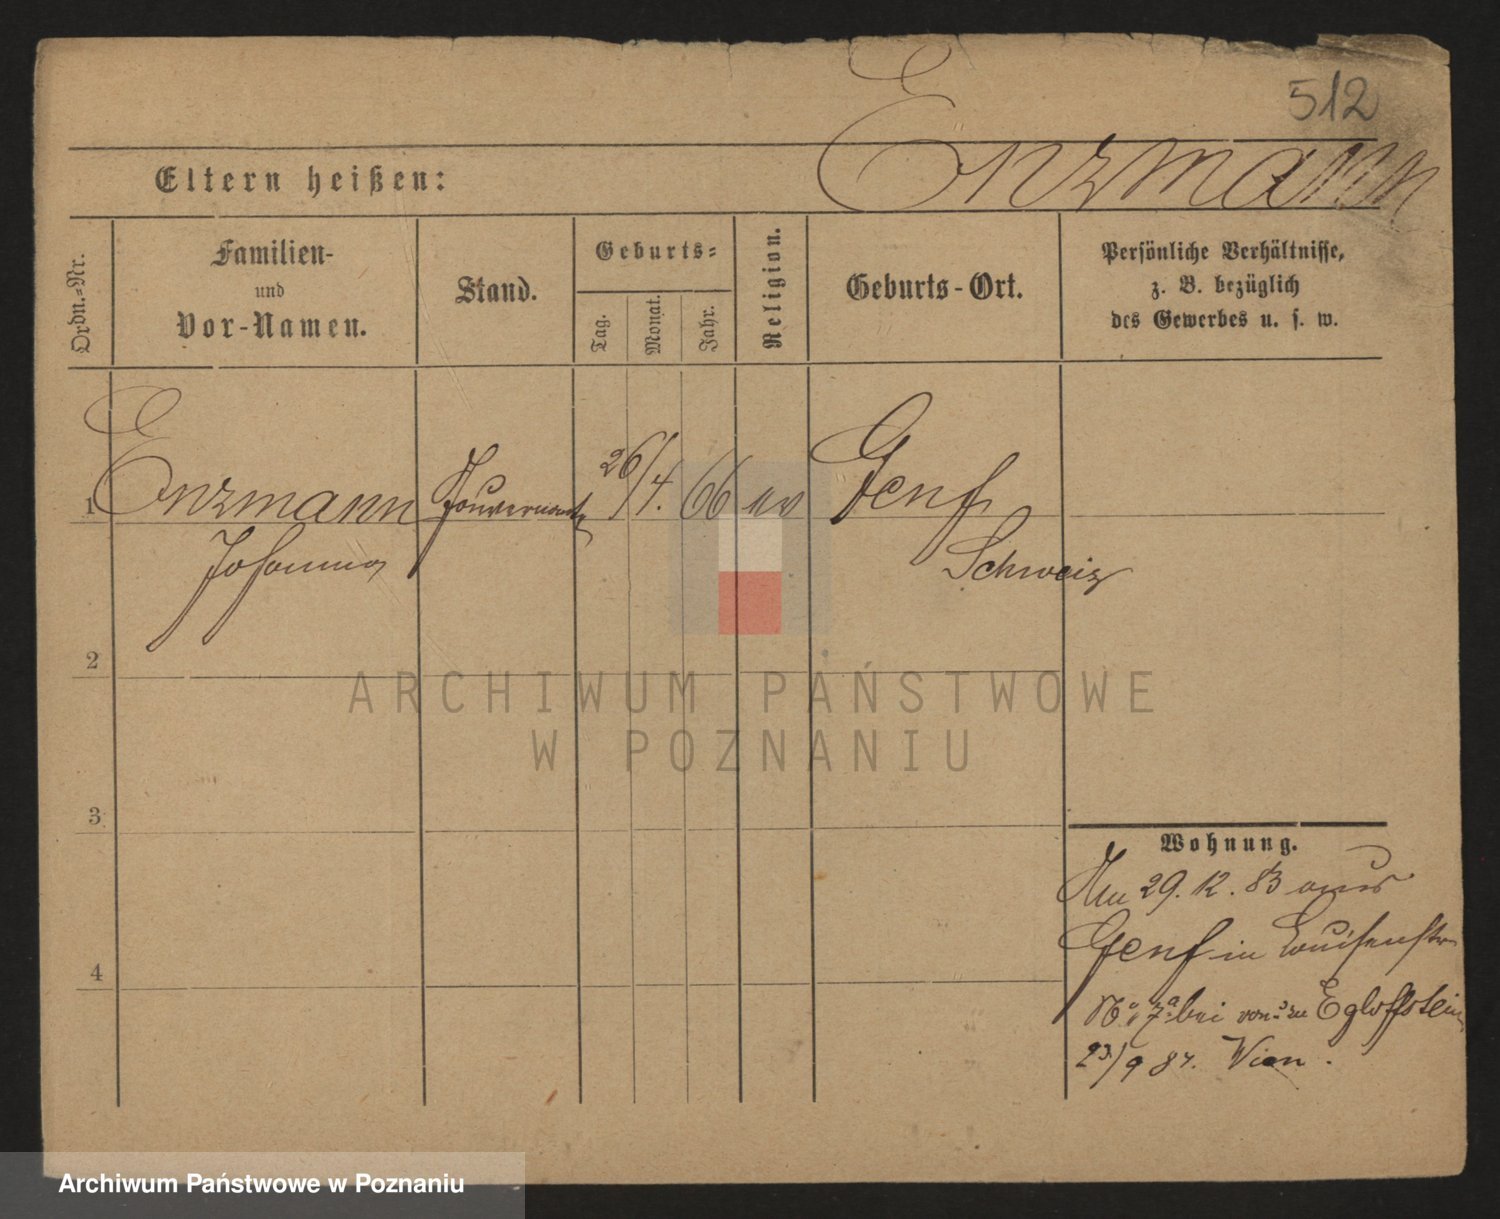 512
Enzmann
Eltern heißen:
Ordn.=Nr.
Familien-
und
Vor-Namen.
Stand.
Geburts=
Tag.
Monat.
Jahr.
Religion.
Geburts-Ort.
Persönliche Verhältnisse,
z. B. bezüglich
des Gewerbes u. s. w.
1 Enzmann Gouvernante 26/4. 66 ev Genf
Johanna Schweiz
2
3
4
ARCHIWUM PAŃSTWOWE
W POZNANIU
Wohnung.
Am 29. 12. 83 aus
Genf in Louisenstr
No 7a bei von u. zu Egloffstein
23/9 84. Wien.
Archiwum Państwowe w Poznaniu